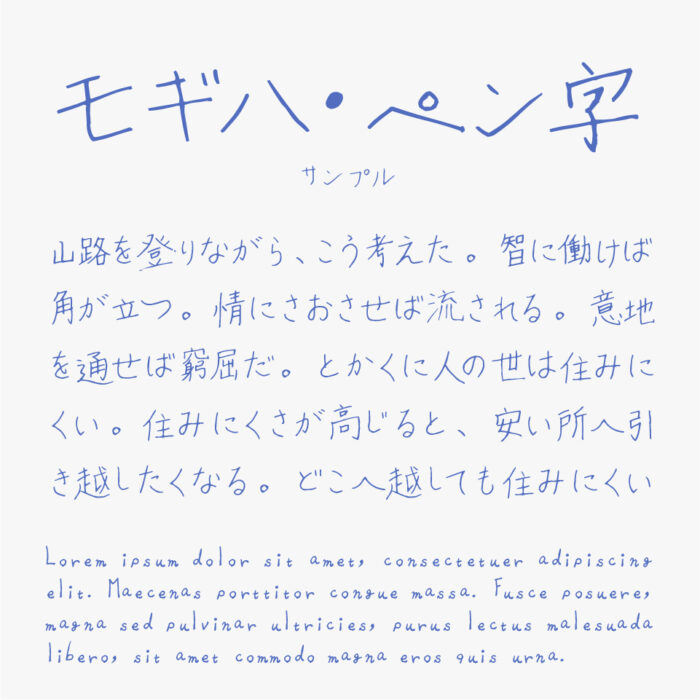 モギハ・ペン字
サンプル
山路を登りながら、こう考えた。智に働けば
角が立つ。情にさおさせば流される。意地
を通せば窮屈だ。とかくに人の世は住みに
くい。住みにくさが高じると、安い所へ引
き越したくなる。どこへ越しても住みにくい
Lorem ipsum dolor sit amet, consectetuer adipiscing
elit. Maecenas porttitor congue massa. Fusce posuere,
magna sed pulvinar ultricies, purus lectus malesuada
libero, sit amet commodo magna eros quis urna.